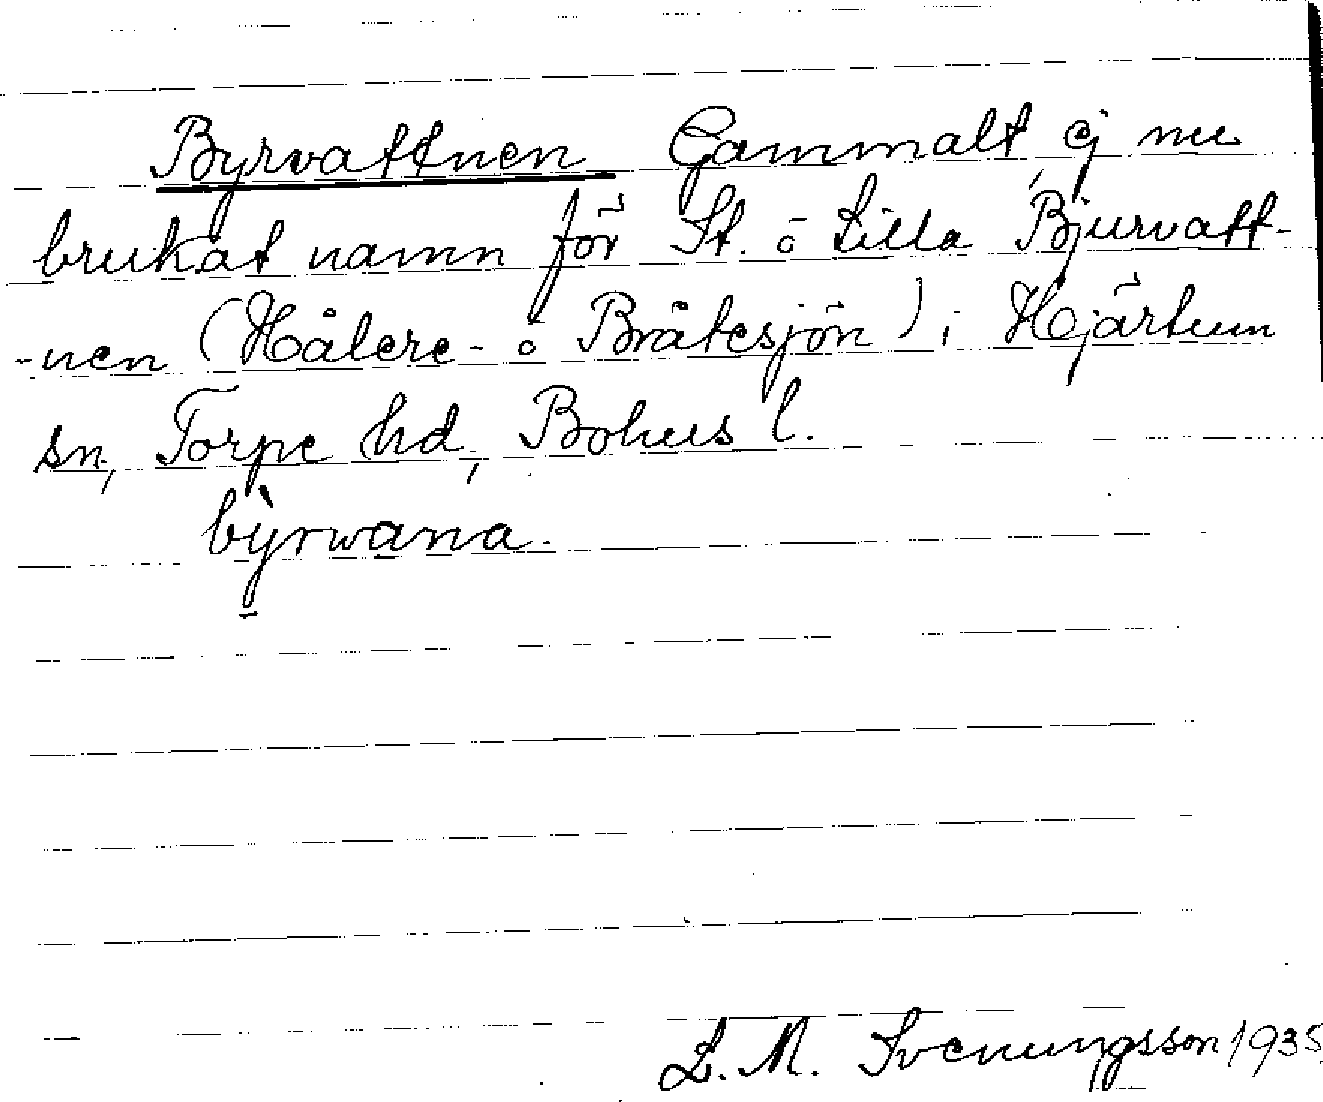 Byrvattnen Gammalt ej nu
brukat namn för St. o Lilla Bjurvatt-
-nen (Hålere- o Bråtesjön) i Hjärtum
sn, Torpe hd, Bohus l.
bỳ̱rwana.
L. M. Svenungsson 1935